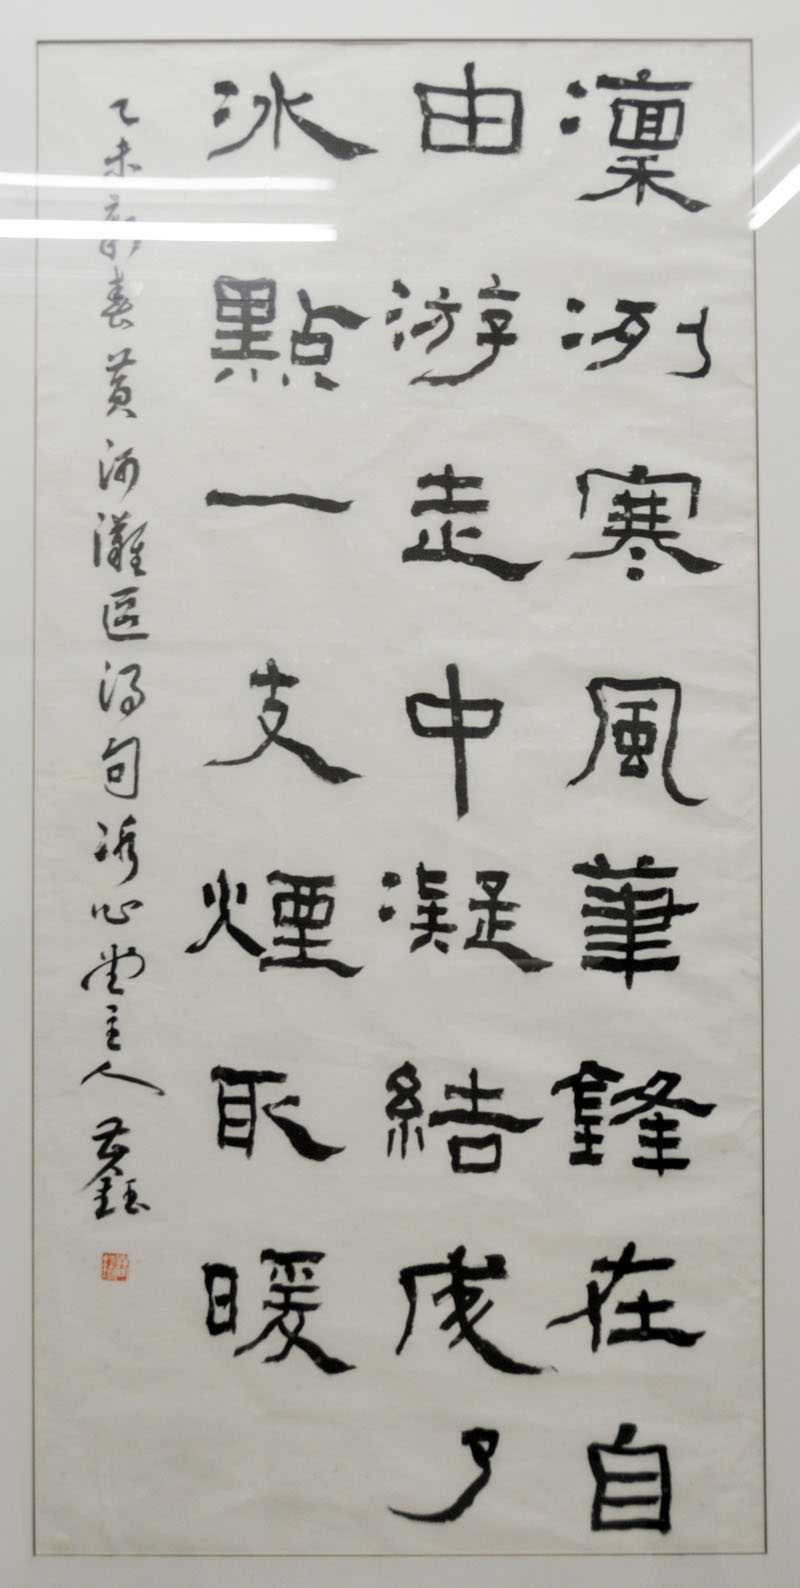 凜冽寒風筆鋒在自
由游走中凝結成了
冰點一支煙取暖
乙未新春黃河灘區得句冰心堂主人